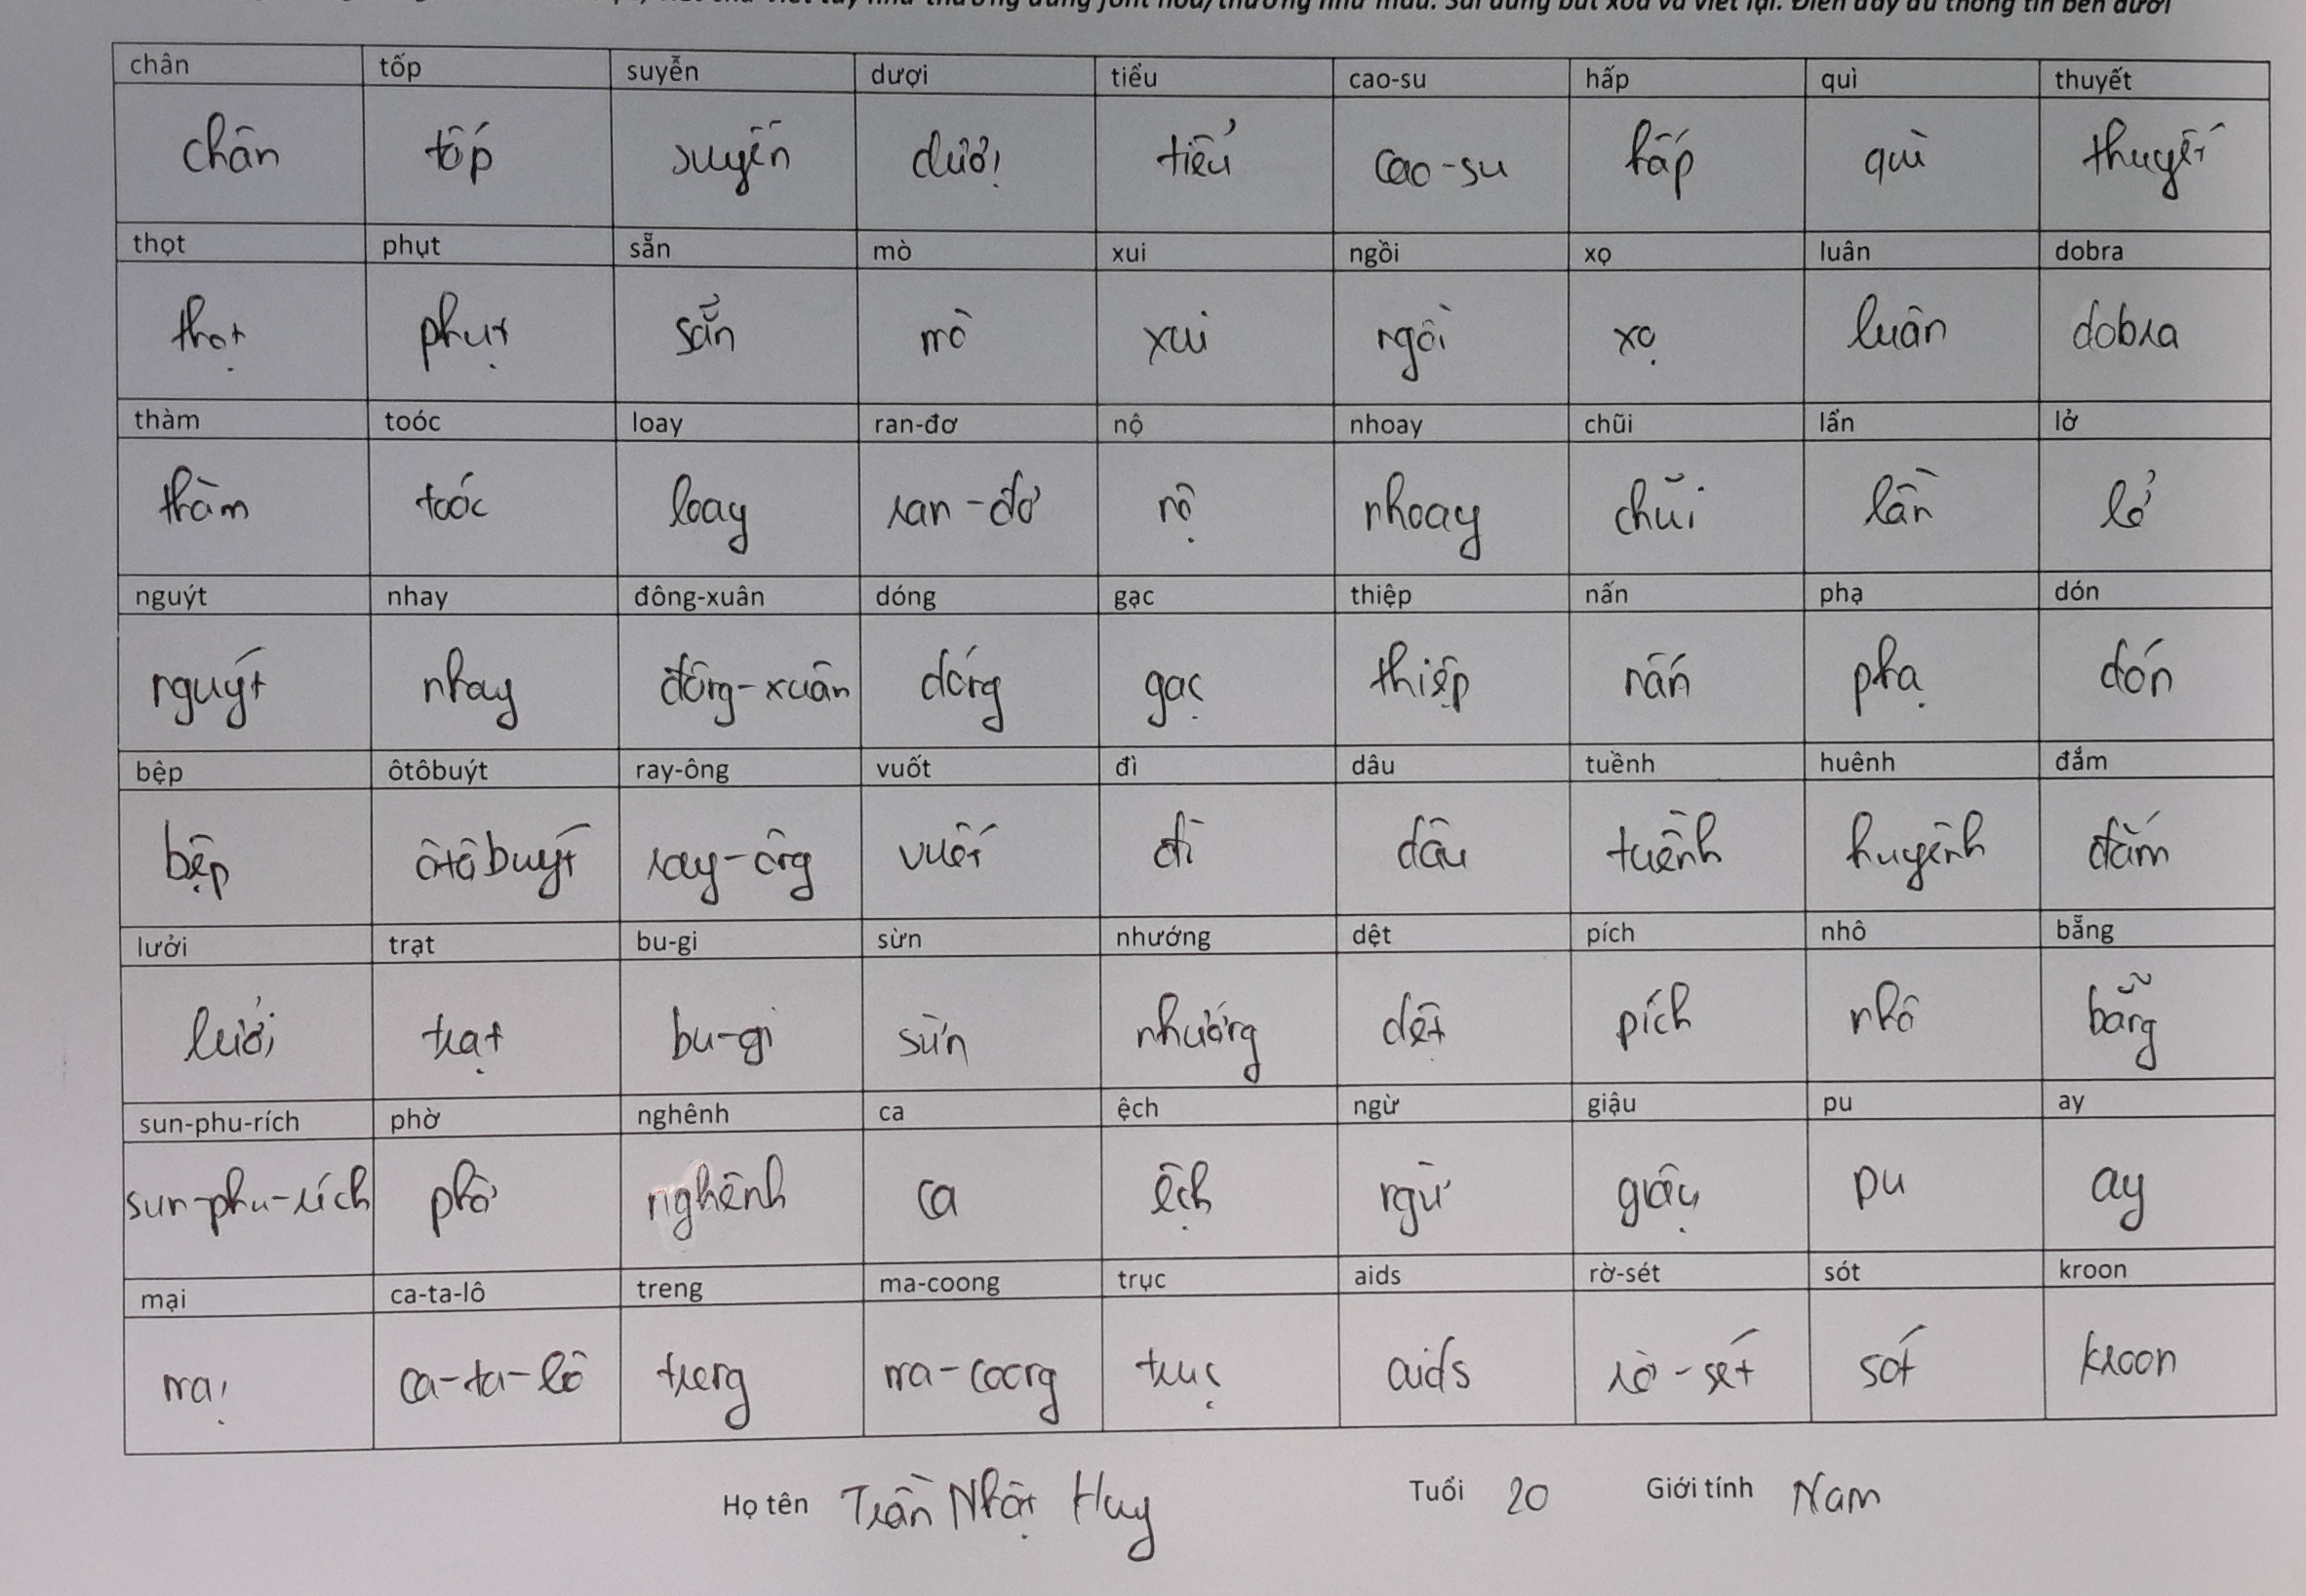 viết chữ viết tay như thường dùng font hoa/thường như mẫu. Sai dùng bút xoá và viết lại. Điền đầy đủ thông tin bên dưới
chân tốp suyễn dượi tiểu cao-su hấp quì thuyết
chân tốp suyễn dượi tiểu cao-su hấp quì thuyết
thọt phụt sẵn mò xui ngồi xọ luân dobra
thọt phụt sẵn mò xui ngồi xọ luân dobra
thàm toóc loay ran-đơ nộ nhoay chũi lẩn lở
thàm toóc loay ran-đơ nộ nhoay chũi lần lở
nguýt nhay đông-xuân dóng gạc thiệp nấn phạ dón
nguýt nhay đông-xuân dóng gạc thiệp nấn phạ dón
bệp ôtôbuýt ray-ông vuốt đì dâu tuềnh huênh đắm
bệp ôtôbuýt ray-ông vuốt đì dâu tuềnh huyênh đắm
lưởi trạt bu-gi sừn nhướng dệt pích nhô bẵng
lưởi trạt bu-gi sừn nhướng dệt pích nhô bẵng
sun-phu-rích phờ nghênh ca ệch ngừ giậu pu ay
sun-phu-rích phờ nghênh ca ệch ngừ giậu pu ay
mại ca-ta-lô treng ma-coong trục aids rờ-sét sót kroon
mại ca-ta-lô treng ma-coong trục aids rờ-sét sót kroon
Họ tên Trần Nhật Huy Tuổi 20 Giới tính Nam